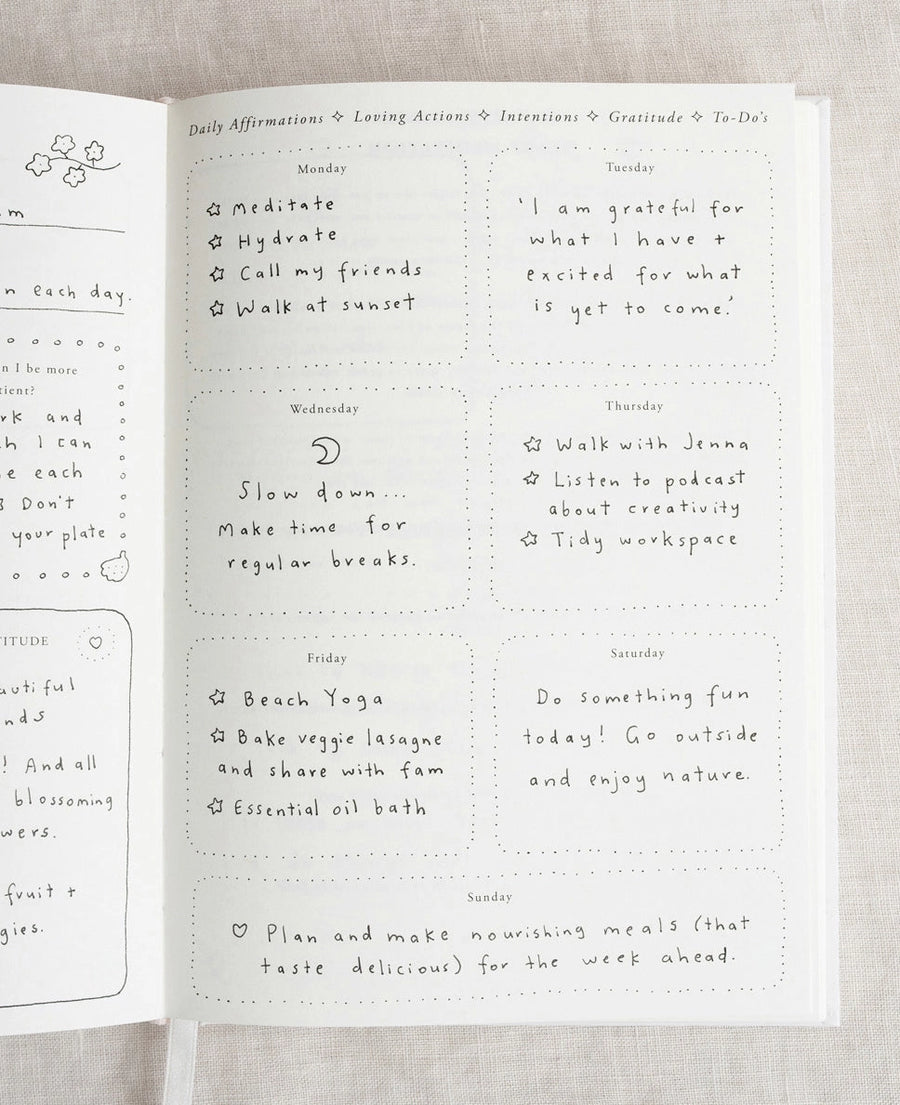 m
n each day.
n I be more
tient?
rk and
h I can
e each
Don't
your plate
TITUDE
autiful
nds
! And all
blossoming
wers.
fruit +
gies.
Daily Affirmations ✧ Loving Actions ✧ Intentions ✧ Gratitude ✧ To-Do's
Monday
☆ Meditate
☆ Hydrate
☆ Call my friends
☆ Walk at sunset
Tuesday
'I am grateful for
what I have +
excited for what
is yet to come.'
Wednesday
Slow down...
Make time for
regular breaks.
Thursday
☆ Walk with Jenna
☆ Listen to podcast
about creativity
☆ Tidy workspace
Friday
☆ Beach Yoga
☆ Bake veggie lasagne
and share with fam
☆ Essential oil bath
Saturday
Do something fun
today! Go outside
and enjoy nature.
Sunday
♡ Plan and make nourishing meals (that
taste delicious) for the week ahead.